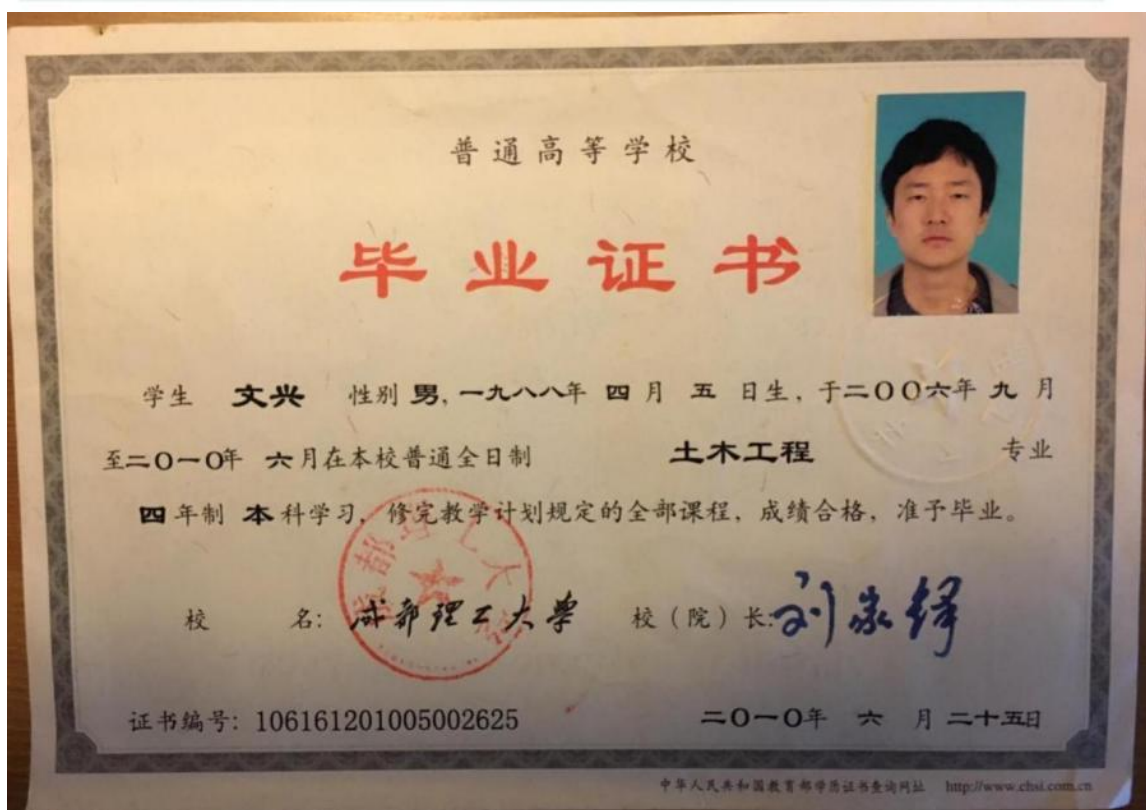 普通高等学校
毕业证书
学生 文兴 性别 男, 一九八八年 四 月 五 日生, 于二〇〇六年 九 月
至二〇一〇年 六 月在本校普通全日制 土木工程 专业
四 年制 本 科学习, 修完教学计划规定的全部课程, 成绩合格, 准予毕业。
校 名: 成都理工大学 校(院)长: 刘家铎
证书编号: 106161201005002625 二〇一〇年 六 月 二十五日
中华人民共和国教育部学历证书查询网址 http://www.chsi.com.cn